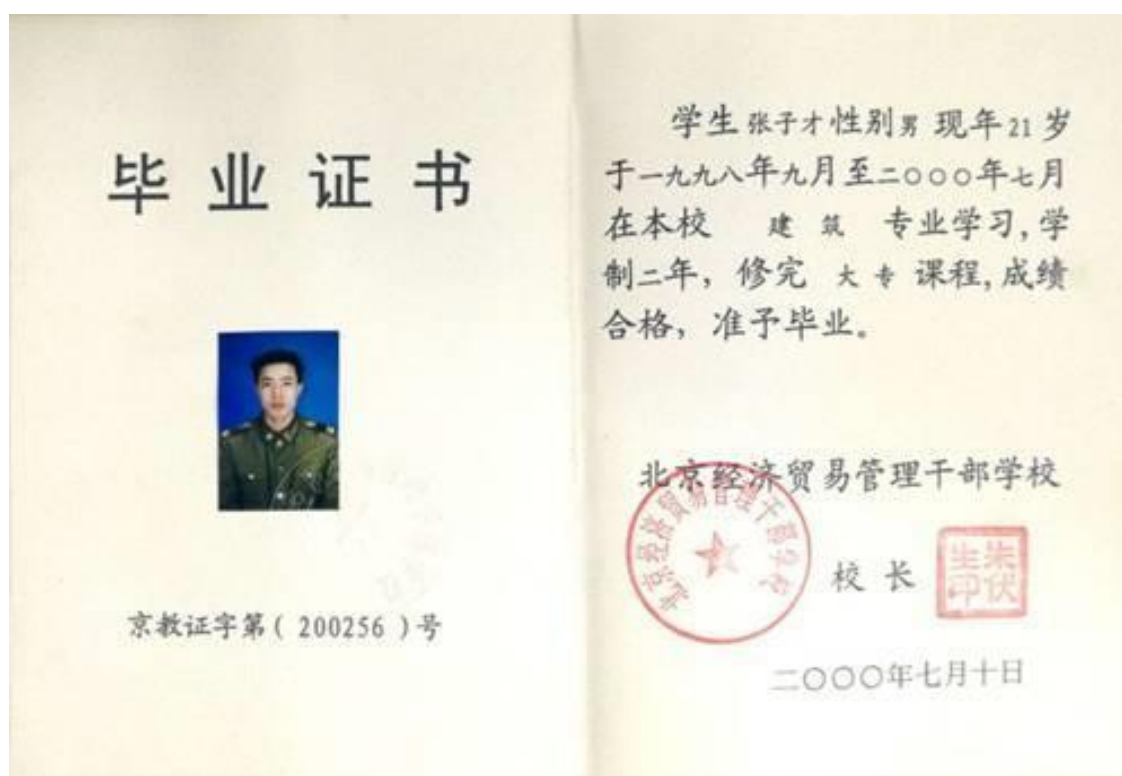 毕业证书
京教证字第( 200256 )号
学生张子才性别男 现年21岁
于一九九八年九月至二〇〇〇年七月
在本校 建筑 专业学习,学
制二年，修完 大专 课程,成绩
合格，准予毕业。
北京经济贸易管理干部学校
北京经济贸易管理干部学校
校长
朱伏
生印
二〇〇〇年七月十日